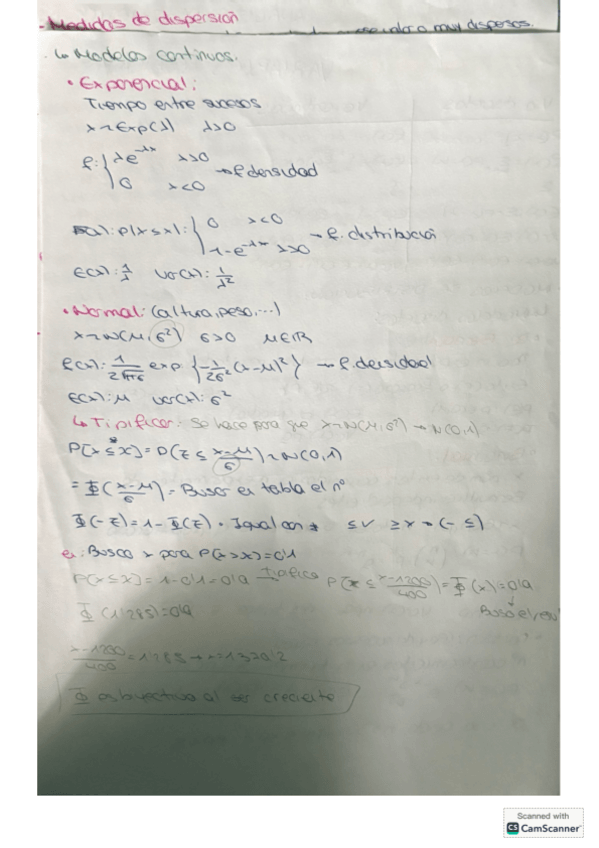 - Medidas de dispersión
muy dispersos.
↳ Modelos continuos.
• Exponencial:
Tiempo entre sucesos
x~Exp(λ) λ>0
f: { λe^-λx x>0
0 x<0 → f. densidad
F(x): P(X≤x): { 0 x<0
1-e^-λx x>0 → f. distribución
E(x): 1/λ Var(x): 1/λ²
• Normal: (altura, peso, ...)
x~N(μ, σ²) σ>0 μ∈ℝ
f(x): 1/2√πσ exp {-1/2σ² (x-μ)²} → f. densidad
E(x): μ Var(x): σ²
↳ Tipificar: Se hace para que x~N(μ, σ²) → N(0,1)
P(x≤x) = P(z ≤ x-μ/σ) ~ N(0,1)
= Φ(x-μ/σ) = Buscar en tabla el nº
Φ(-z) = 1-Φ(z) • Igual con
ej: Busco x para P(x>x)=0'1
P(x≤x) = 1-0'1 = 0'9 → tipifico P(z ≤ x-1200/400) = Φ(x) = 0'9
Φ(1'285) = 0'9
x-1200/400 = 1'285 →
Φ es biyectiva al ser creciente
Scanned with
CS CamScanner